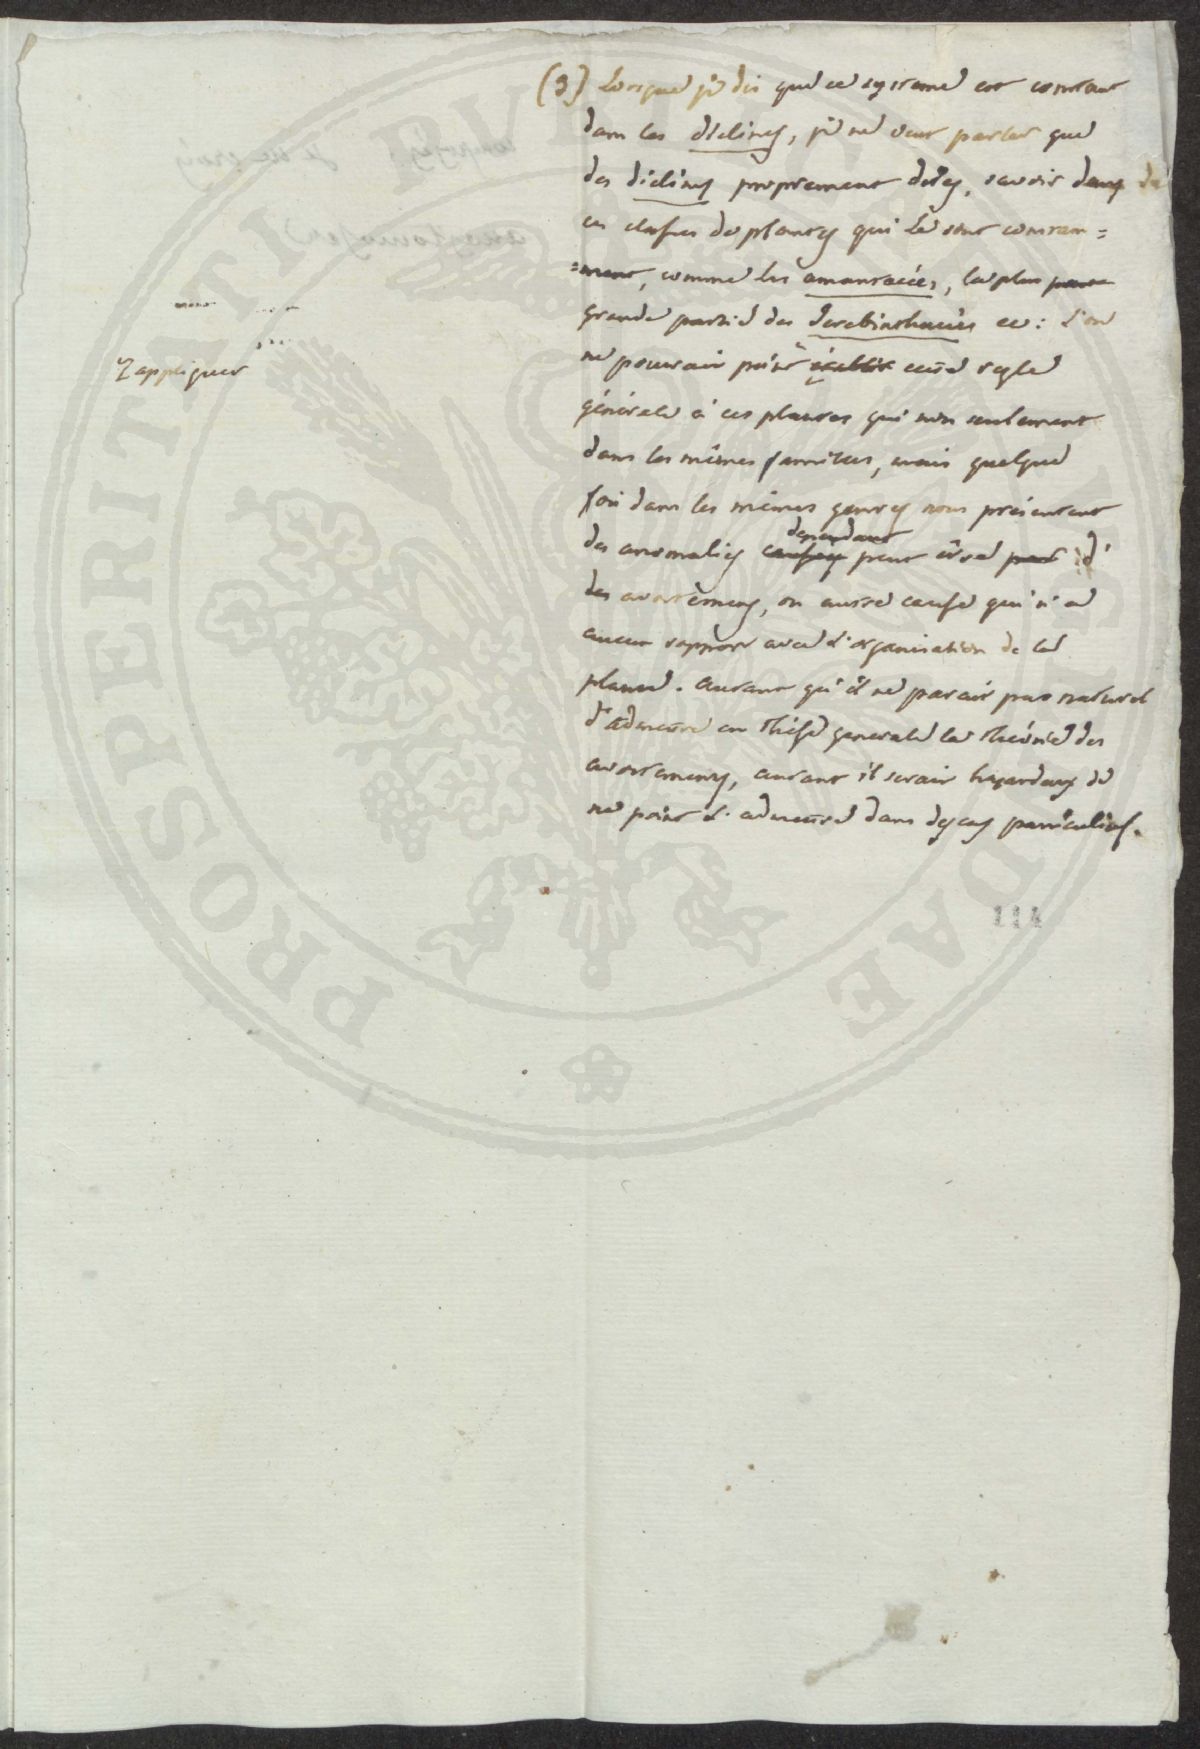 (3) Lorsque je dis que ce systeme est constant
dans les diclines, je ne veux parler que
des diclines proprement dites, savoir dans de
ces classes de plantes qui le sont constam=
=ment, comme les amantacées, la plus parte
grande partie des terebinthacées &c: l'on
ne pourrait point établir cette regle
appliquer
générale à ces plantes qui non seulement
dans les mêmes familles, mais quelque
fois dans les mêmes genres nous présentent
dependant
des anomalies causées peut être par d'
des avortemens, ou autre cause qui n'a
aucun rapport avec l'organisation de la
plante. Autant qu'il ne parait pas naturel
d'admettre en thése generale la théorie des
avortemens, autant il serait hazardeux de
ne point l'admettre dans des cas particuliers.
114
PROSPERITATI PUBLICAE